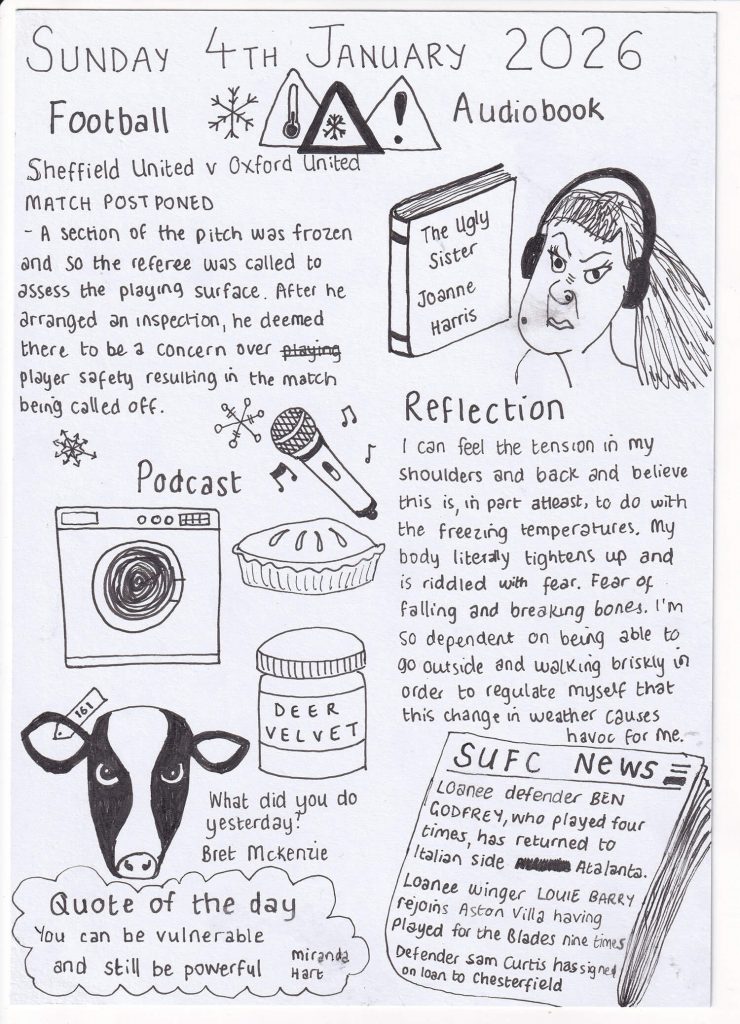 SUNDAY 4TH JANUARY 2026
Football
Sheffield United v Oxford United
MATCH POSTPONED
- A section of the pitch was frozen
and so the referee was called to
assess the playing surface. After he
arranged an inspection, he deemed
there to be a concern over playing
player safety resulting in the match
being called off.
!
Audiobook
The Ugly
Sister
Joanne
Harris
Podcast
DEER
VELVET
161
What did you do
yesterday?
Bret McKenzie
Reflection
I can feel the tension in my
shoulders and back and believe
this is, in part atleast, to do with
the freezing temperatures. My
body literally tightens up and
is riddled with fear. Fear of
falling and breaking bones. I'm
so dependent on being able to
go outside and walking briskly in
order to regulate myself that
this change in weather causes
havoc for me.
Quote of the day
You can be vulnerable
and still be powerful
Miranda
Hart
SUFC NEWS
Loanee defender BEN
GODFREY, who played four
times, has returned to
Italian side Atalanta.
Loanee winger LOUIE BARRY
rejoins Aston Villa having
played for the Blades nine times
Defender Sam Curtis has signed
on loan to Chesterfield